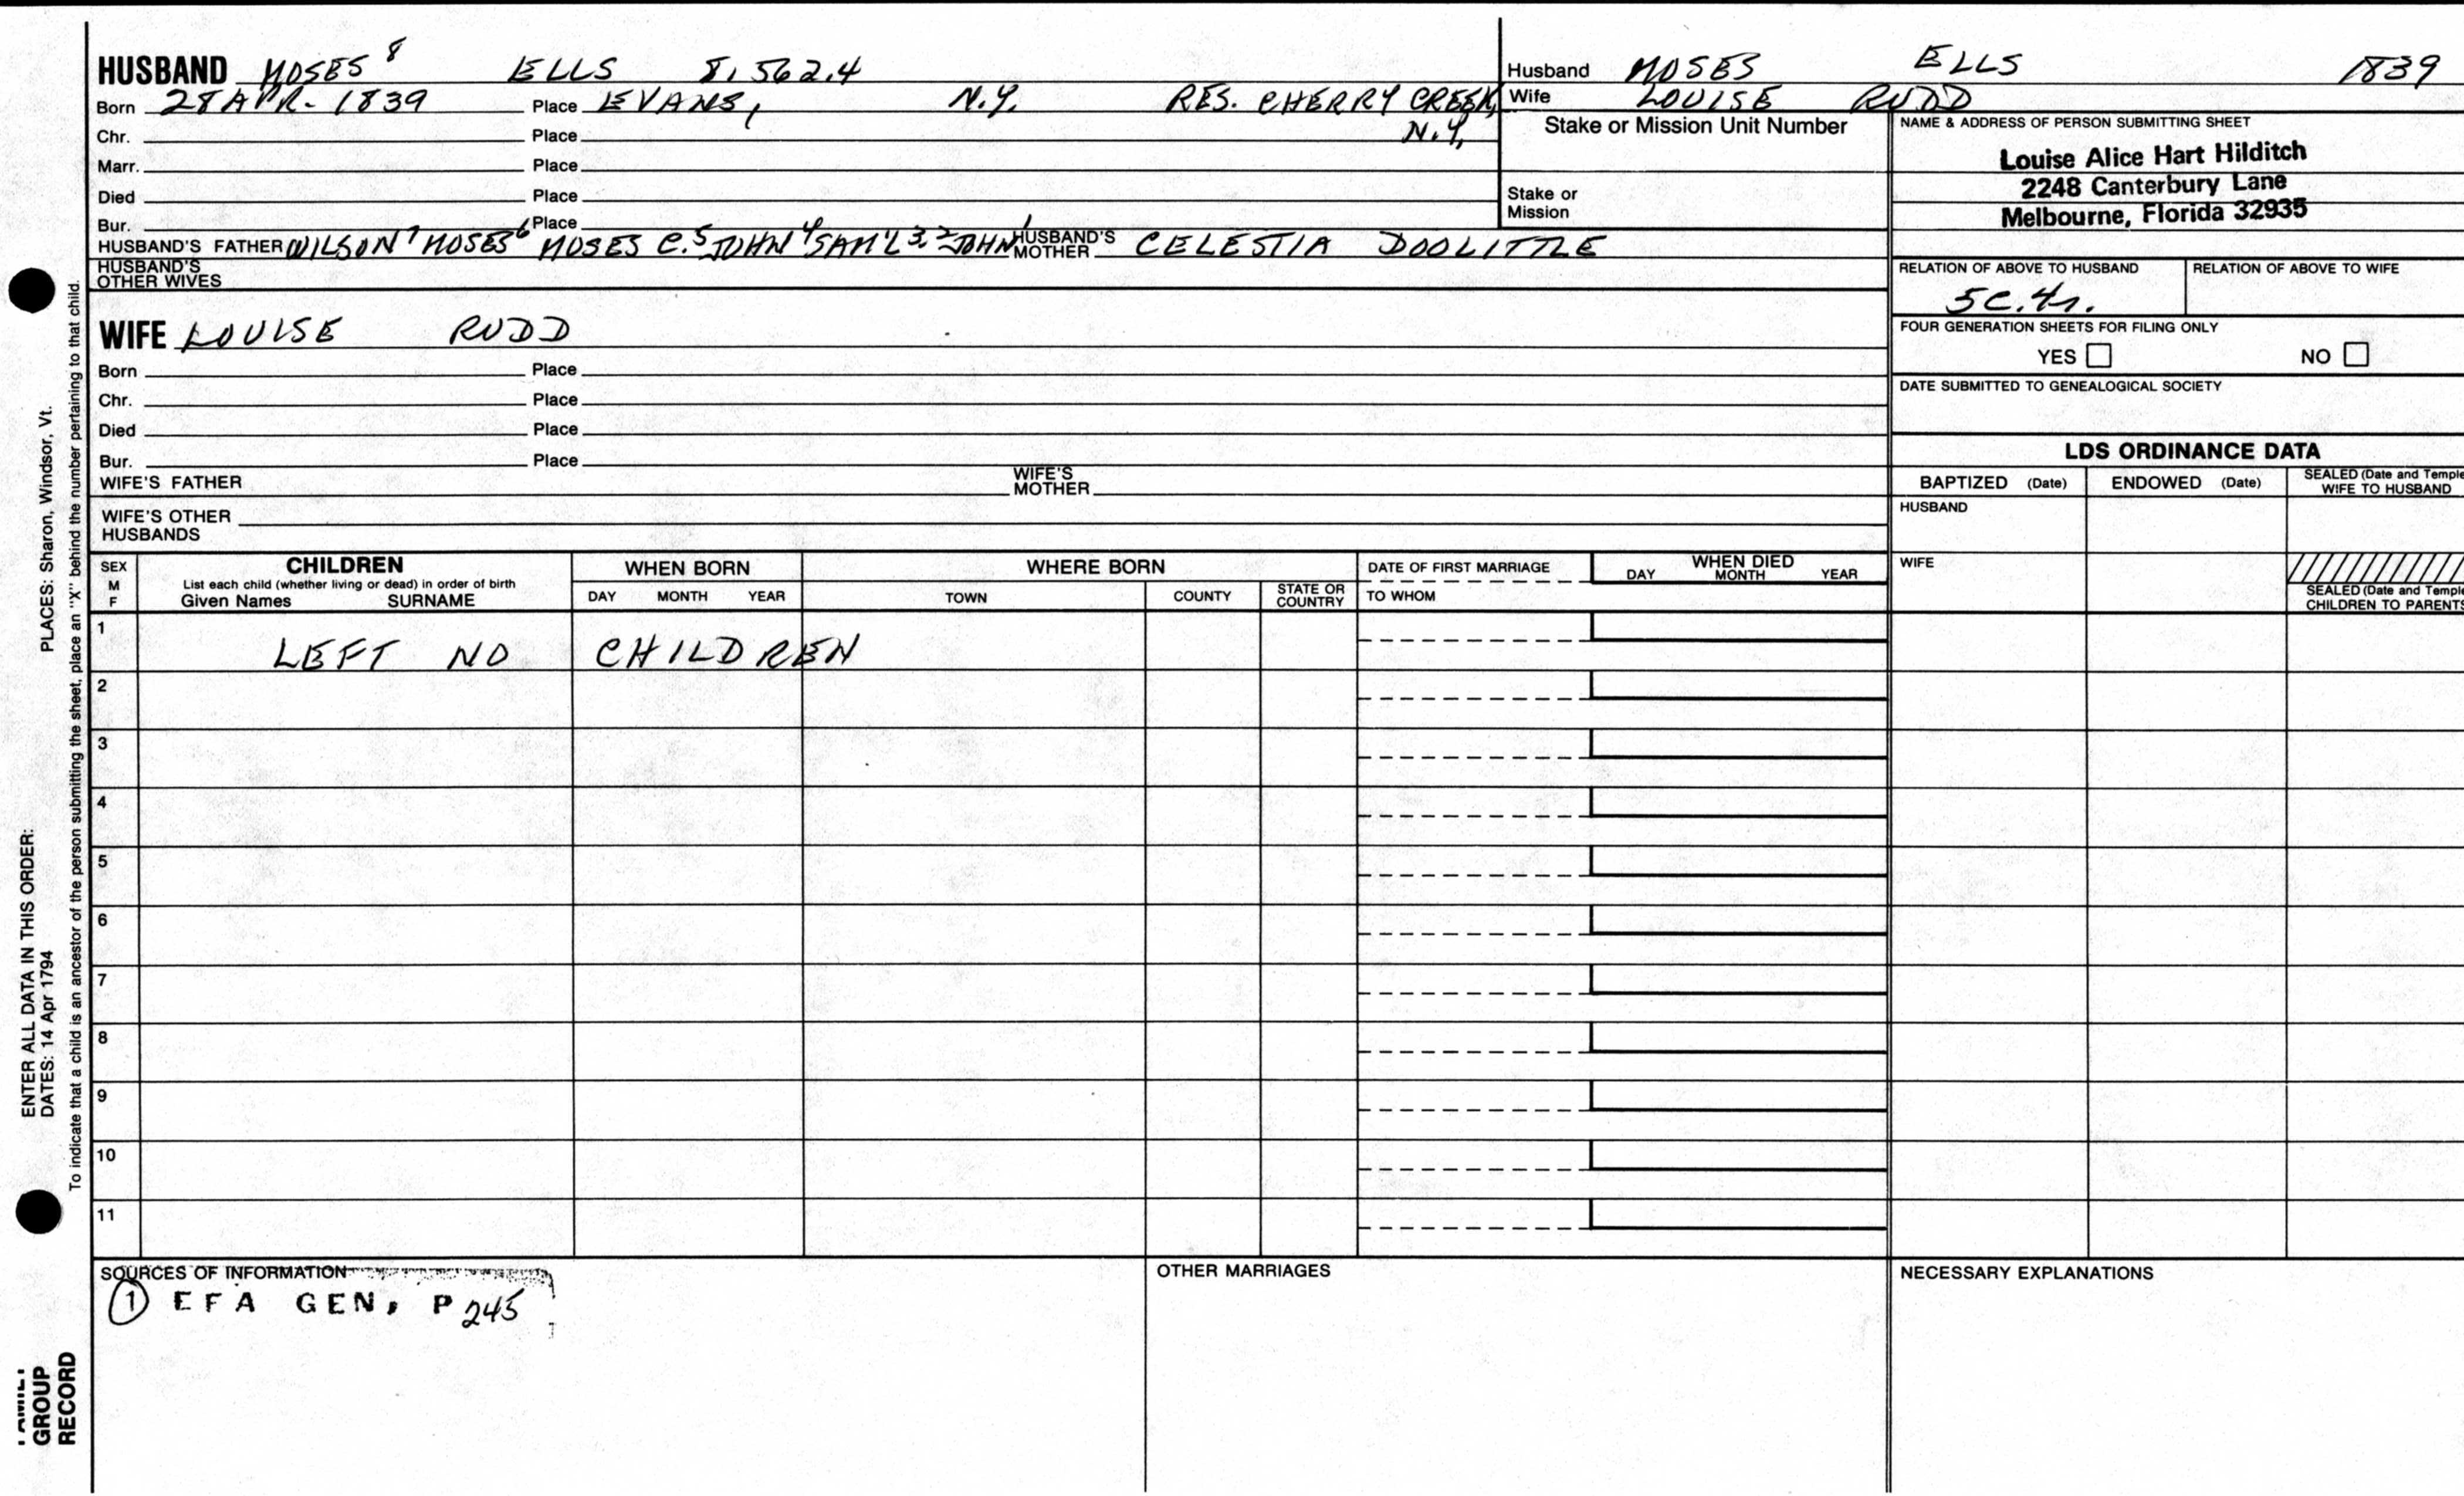 HUSBAND MOSES 8 ELLS 8,562.4
Born 28 APR- 1839 Place EVANS, N.Y. RES. CHERRY CREEK,
N.Y.
Chr. Place
Marr. Place
Died Place
Bur. Place
HUSBAND'S FATHER WILSON 7 MOSES 6 MOSES C. 5 JOHN 4 SAM'L 3, 2 JOHN 1 HUSBAND'S MOTHER CELESTIA DOOLITTLE
HUSBAND'S OTHER WIVES
WIFE LOUISE RUDD
Born Place
Chr. Place
Died Place
Bur. Place
WIFE'S FATHER WIFE'S MOTHER
WIFE'S OTHER HUSBANDS
Husband MOSES ELLS 1839
Wife LOUISE RUDD
Stake or Mission Unit Number
Stake or
Mission
NAME & ADDRESS OF PERSON SUBMITTING SHEET
Louise Alice Hart Hilditch
2248 Canterbury Lane
Melbourne, Florida 32935
RELATION OF ABOVE TO HUSBAND RELATION OF ABOVE TO WIFE
5C.4r.
FOUR GENERATION SHEETS FOR FILING ONLY
YES NO
DATE SUBMITTED TO GENEALOGICAL SOCIETY
LDS ORDINANCE DATA
BAPTIZED (Date) ENDOWED (Date) SEALED (Date and Temple
WIFE TO HUSBAND
HUSBAND
WIFE
SEALED (Date and Temple
CHILDREN TO PARENTS
SEX
M
F
CHILDREN
List each child (whether living or dead) in order of birth
Given Names SURNAME
WHEN BORN
DAY MONTH YEAR
WHERE BORN
TOWN COUNTY STATE OR COUNTRY
DATE OF FIRST MARRIAGE
TO WHOM
WHEN DIED
DAY MONTH YEAR
1
LEFT NO CHILDREN
2
3
4
5
6
7
8
9
10
11
SOURCES OF INFORMATION
1 EFA GEN, P 245
OTHER MARRIAGES
NECESSARY EXPLANATIONS
ENTER ALL DATA IN THIS ORDER:
DATES: 14 Apr 1794 PLACES: Sharon, Windsor, Vt.
To indicate that a child is an ancestor of the person submitting the sheet, place an "X" behind the number pertaining to that child.
FAMILY
GROUP
RECORD